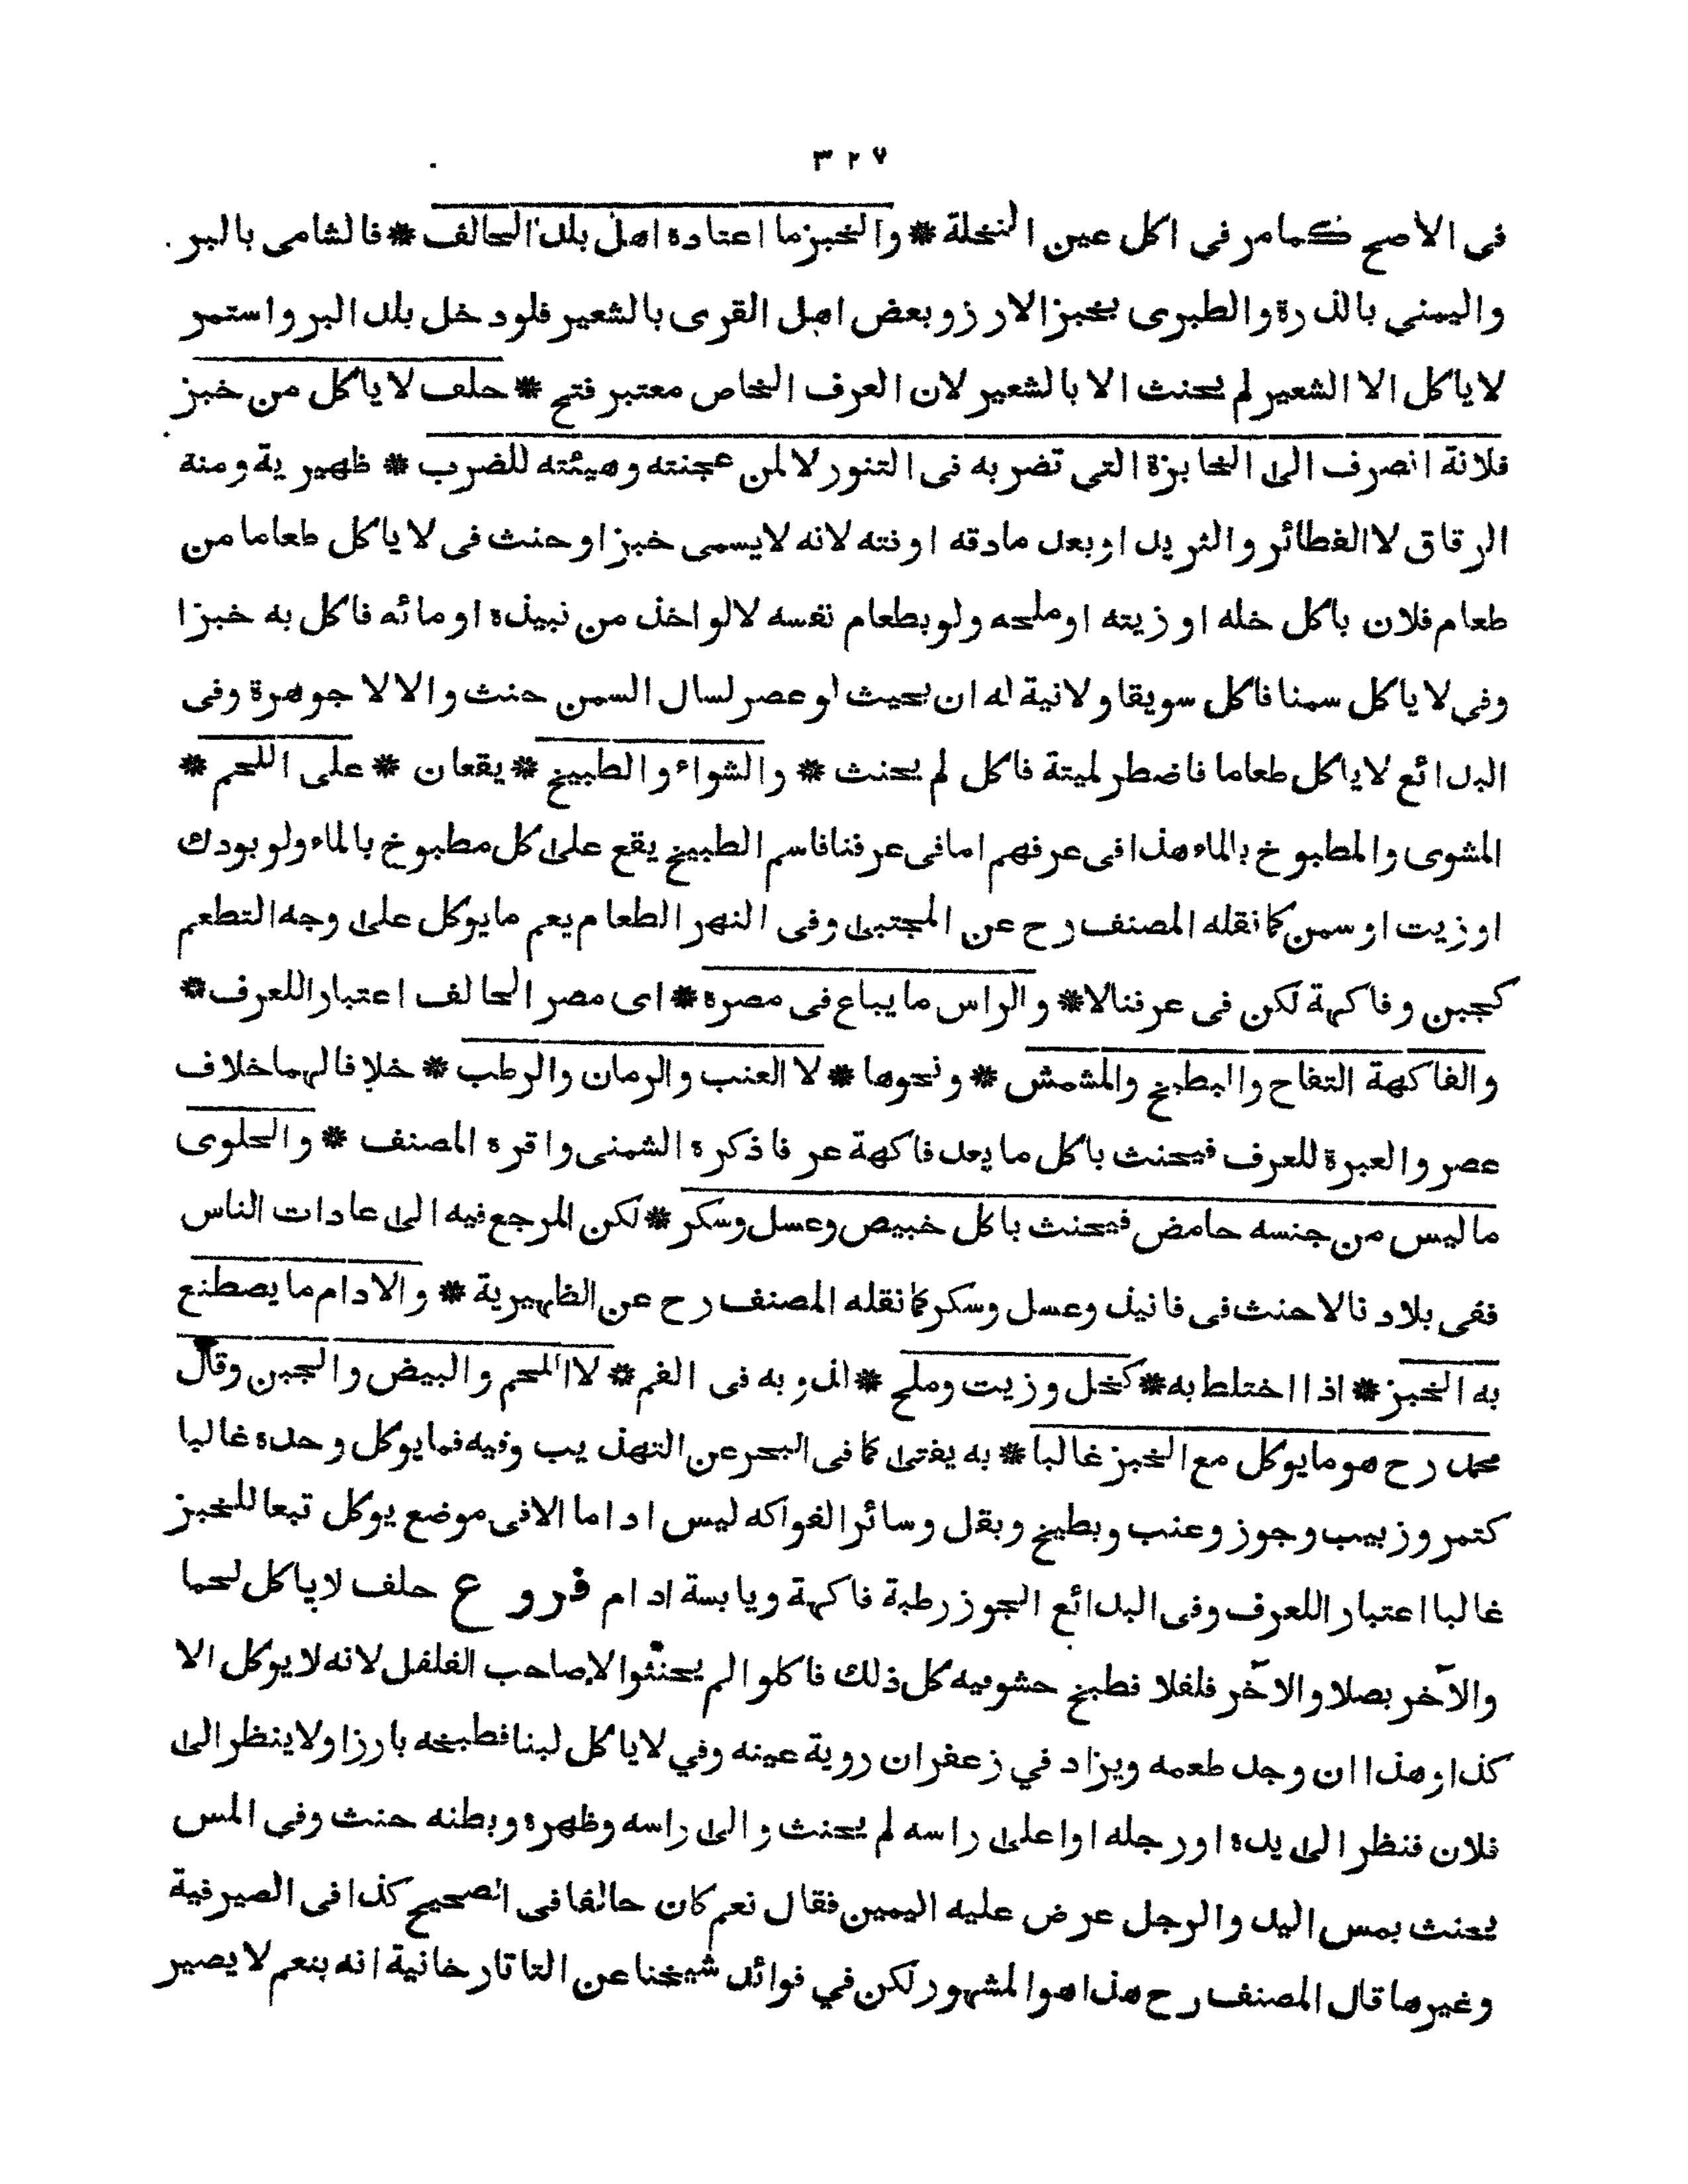 ٣٢٧
فى الاصح كمامر فى اكل عين النخلة * والخبز ما اعتاده اهل بلد الحالف * فالشامى بالبر
واليمني بالذرة والطبرى بخبز الارز وبعض اهل القرى بالشعير فلو دخل بلد البر واستمر
لا ياكل الا الشعير لم يحنث الا بالشعير لان العرف الخاص معتبر فتح * حلف لا ياكل من خبز
فلانة انصرف الى الخابزة التي تضربه فى التنور لا لمن عجنته وهيئته للضرب * ظهيرية ومنة
الرقاق لا الفطائر والثريد او بعد مادقه او نته لانه لا يسمى خبزا وحنث فى لا ياكل طعاما من
طعام فلان باكل خله او زيته او ملحه ولو بطعام نفسه لا لو اخذ من نبيذه او مائه فاكل به خبزا
وفي لا ياكل سمنا فاكل سويقا ولا نية له ان بحيث لو عصر لسال السمن حنث والا لا جوهرة وفى
البدائع لا ياكل طعاما فاضطر لميتة فاكل لم يحنث * والشواء والطبيخ * يقعان * على اللحم *
المشوى والمطبوخ بالماء هذا فى عرفهم اما فى عرفنا فاسم الطبيخ يقع على كل مطبوخ بالماء ولو بودك
او زيت او سمن كما نقله المصنف رح عن المجتبى وفى النهر الطعام يعم ما يوكل على وجه التطعم
كجبن وفاكهة لكن فى عرفنا لا * والراس ما يباع فى مصره * اى مصر الحالف اعتبارا للعرف *
والفاكهة التفاح والبطيخ والمشمش * ونحوها * لا العنب والرمان والرطب * خلافا لهما خلاف
عصر والعبرة للعرف فيحنث باكل ما يعد فاكهة عرفا ذكره الشمنى واقره المصنف * والحلوى
ما ليس من جنسه حامض فيحنث باكل خبيص وعسل وسكر * لكن المرجع فيه الى عادات الناس
ففى بلادنا لا حنث فى فانيذ وعسل وسكر كما نقله المصنف رح عن الظهيرية * والادام ما يصطنع
به الخبز * اذا اختلط به * كخل وزيت وملح * لذوبه فى الفم * لا اللحم والبيض والجبن وقال
محمد رح هو ما يوكل مع الخبز غالبا * به يفتى كما فى البحر عن التهذيب وفيه فما يوكل وحده غالبا
كتمر وزبيب وجوز وعنب وبطيخ وبقل وسائر الفواكه ليس اداما الا فى موضع يوكل تبعا للخبز
غالبا اعتبارا للعرف وفى البدائع الجوز رطبة فاكهة ويابسة ادام فروع حلف لا ياكل لحما
والآخر بصلا والآخر فلفلا فطبخ حشو فيه كل ذلك فاكلوا لم يحنثوا الا صاحب الفلفل لانه لا يوكل الا
كذا وهذا ان وجد طعمه ويزاد في زعفران روية عينه وفي لا ياكل لبنا فطبخه بارزا ولا ينظر الى
فلان فنظر الى يده او رجله او اعلى راسه لم يحنث والى راسه وظهره وبطنه حنث وفى المس
يحنث بمس اليد والرجل عرض عليه اليمين فقال نعم كان حالفا فى الصحيح كذا فى الصيرفية
وغيرها قال المصنف رح هذا هو المشهور لكن في فوائد شيخنا عن التاتارخانية انه بنعم لا يصير